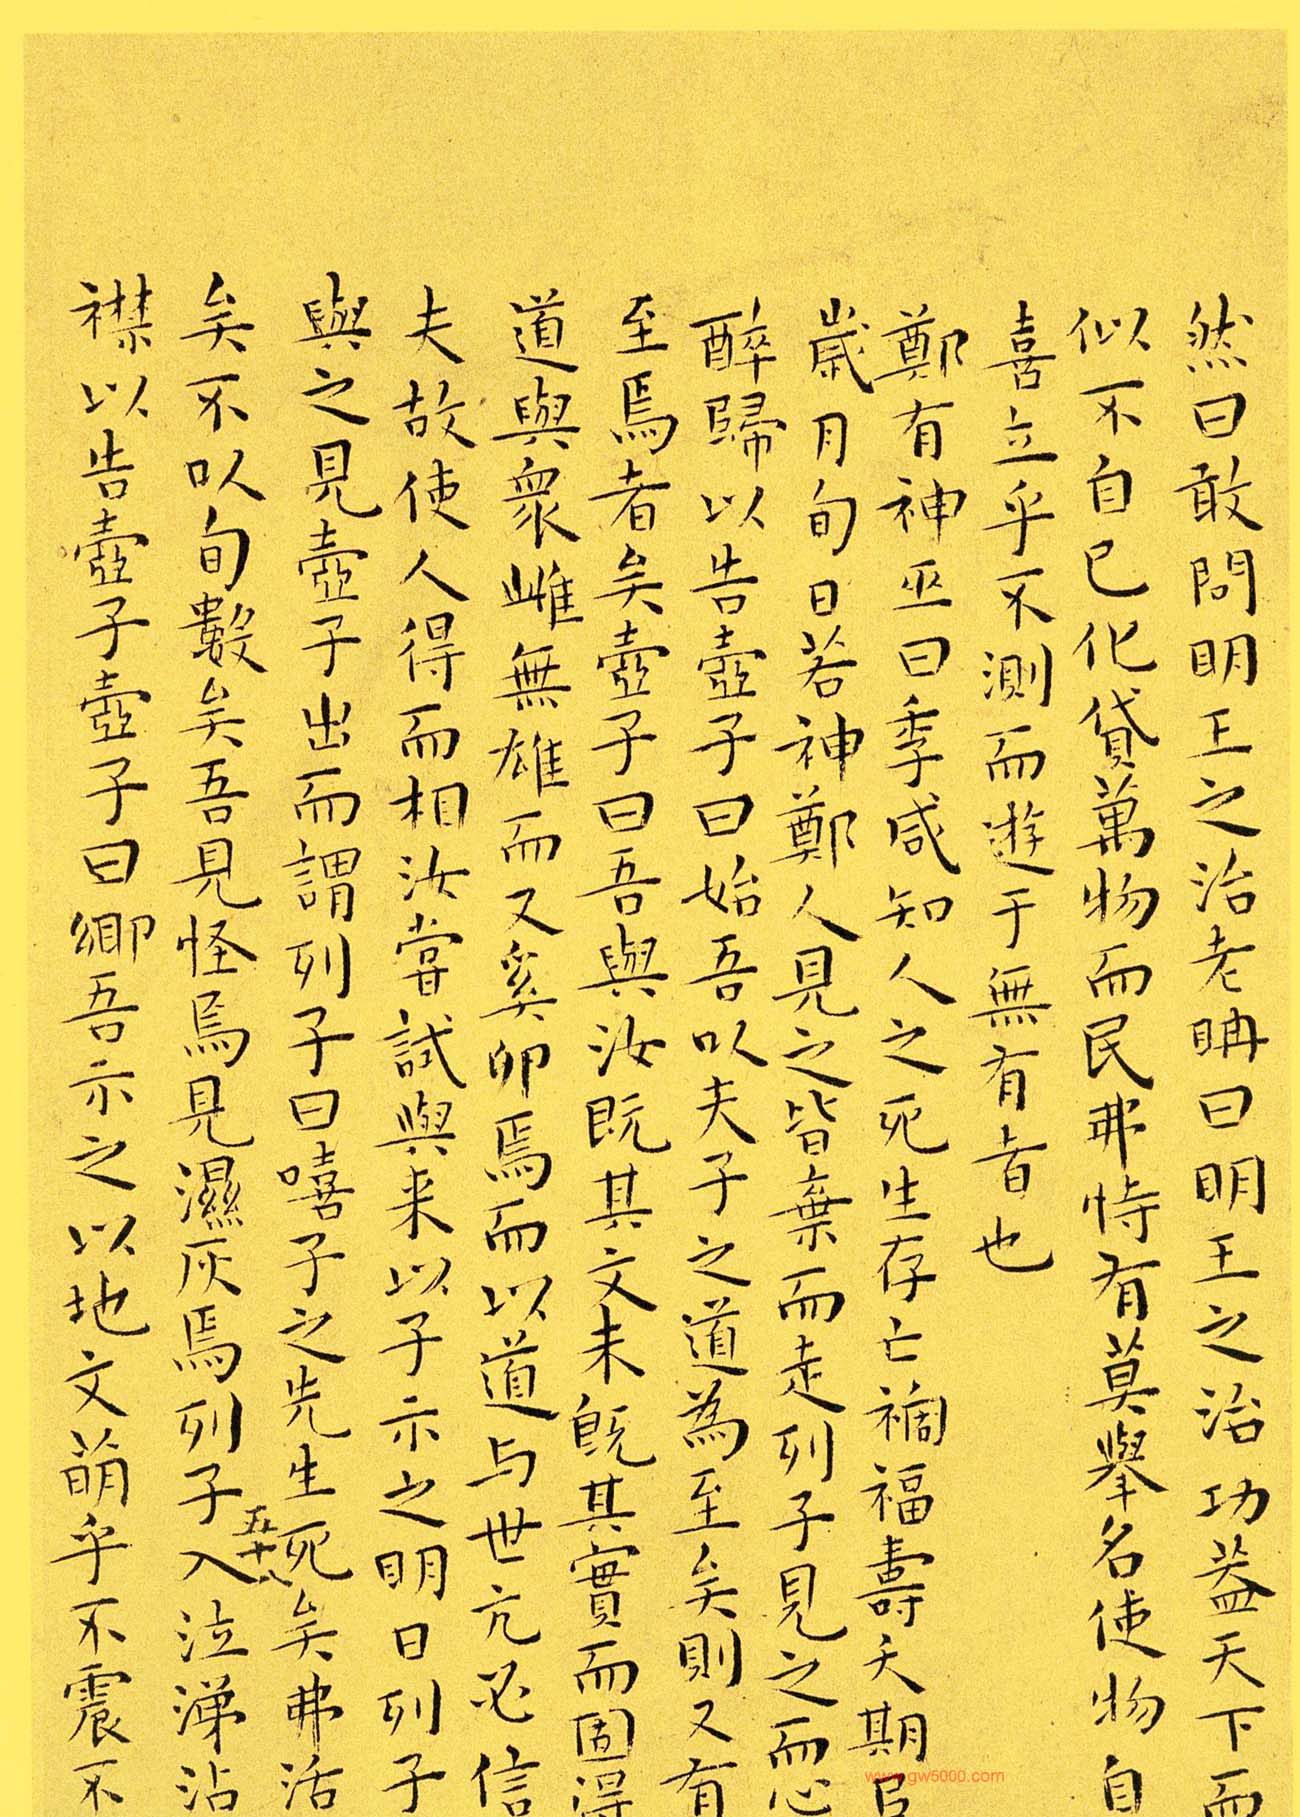 然曰敢問明王之治老聃曰明王之治功蓋天下而
似不自已化貸萬物而民弗恃有莫舉名使物自
喜立乎不測而遊于無有者也
鄭有神巫曰季咸知人之死生存亡禍福壽夭期
歲月旬日若神鄭人見之皆棄而走列子見之而心
醉歸以告壺子曰始吾以夫子之道為至矣則又有
至焉者矣壺子曰吾與汝既其文未既其實而固得
道與衆雌無雄而又奚卵焉而以道与世亢必信
夫故使人得而相汝嘗試與来以子示之明日列子
與之見壺子出而謂列子曰嘻子之先生死矣弗活
矣不以旬數矣吾見怪焉見濕灰焉列子入泣涕沾
五十八
襟以告壺子壺子曰鄉吾示之以地文萌乎不震不
www.gw5000.com